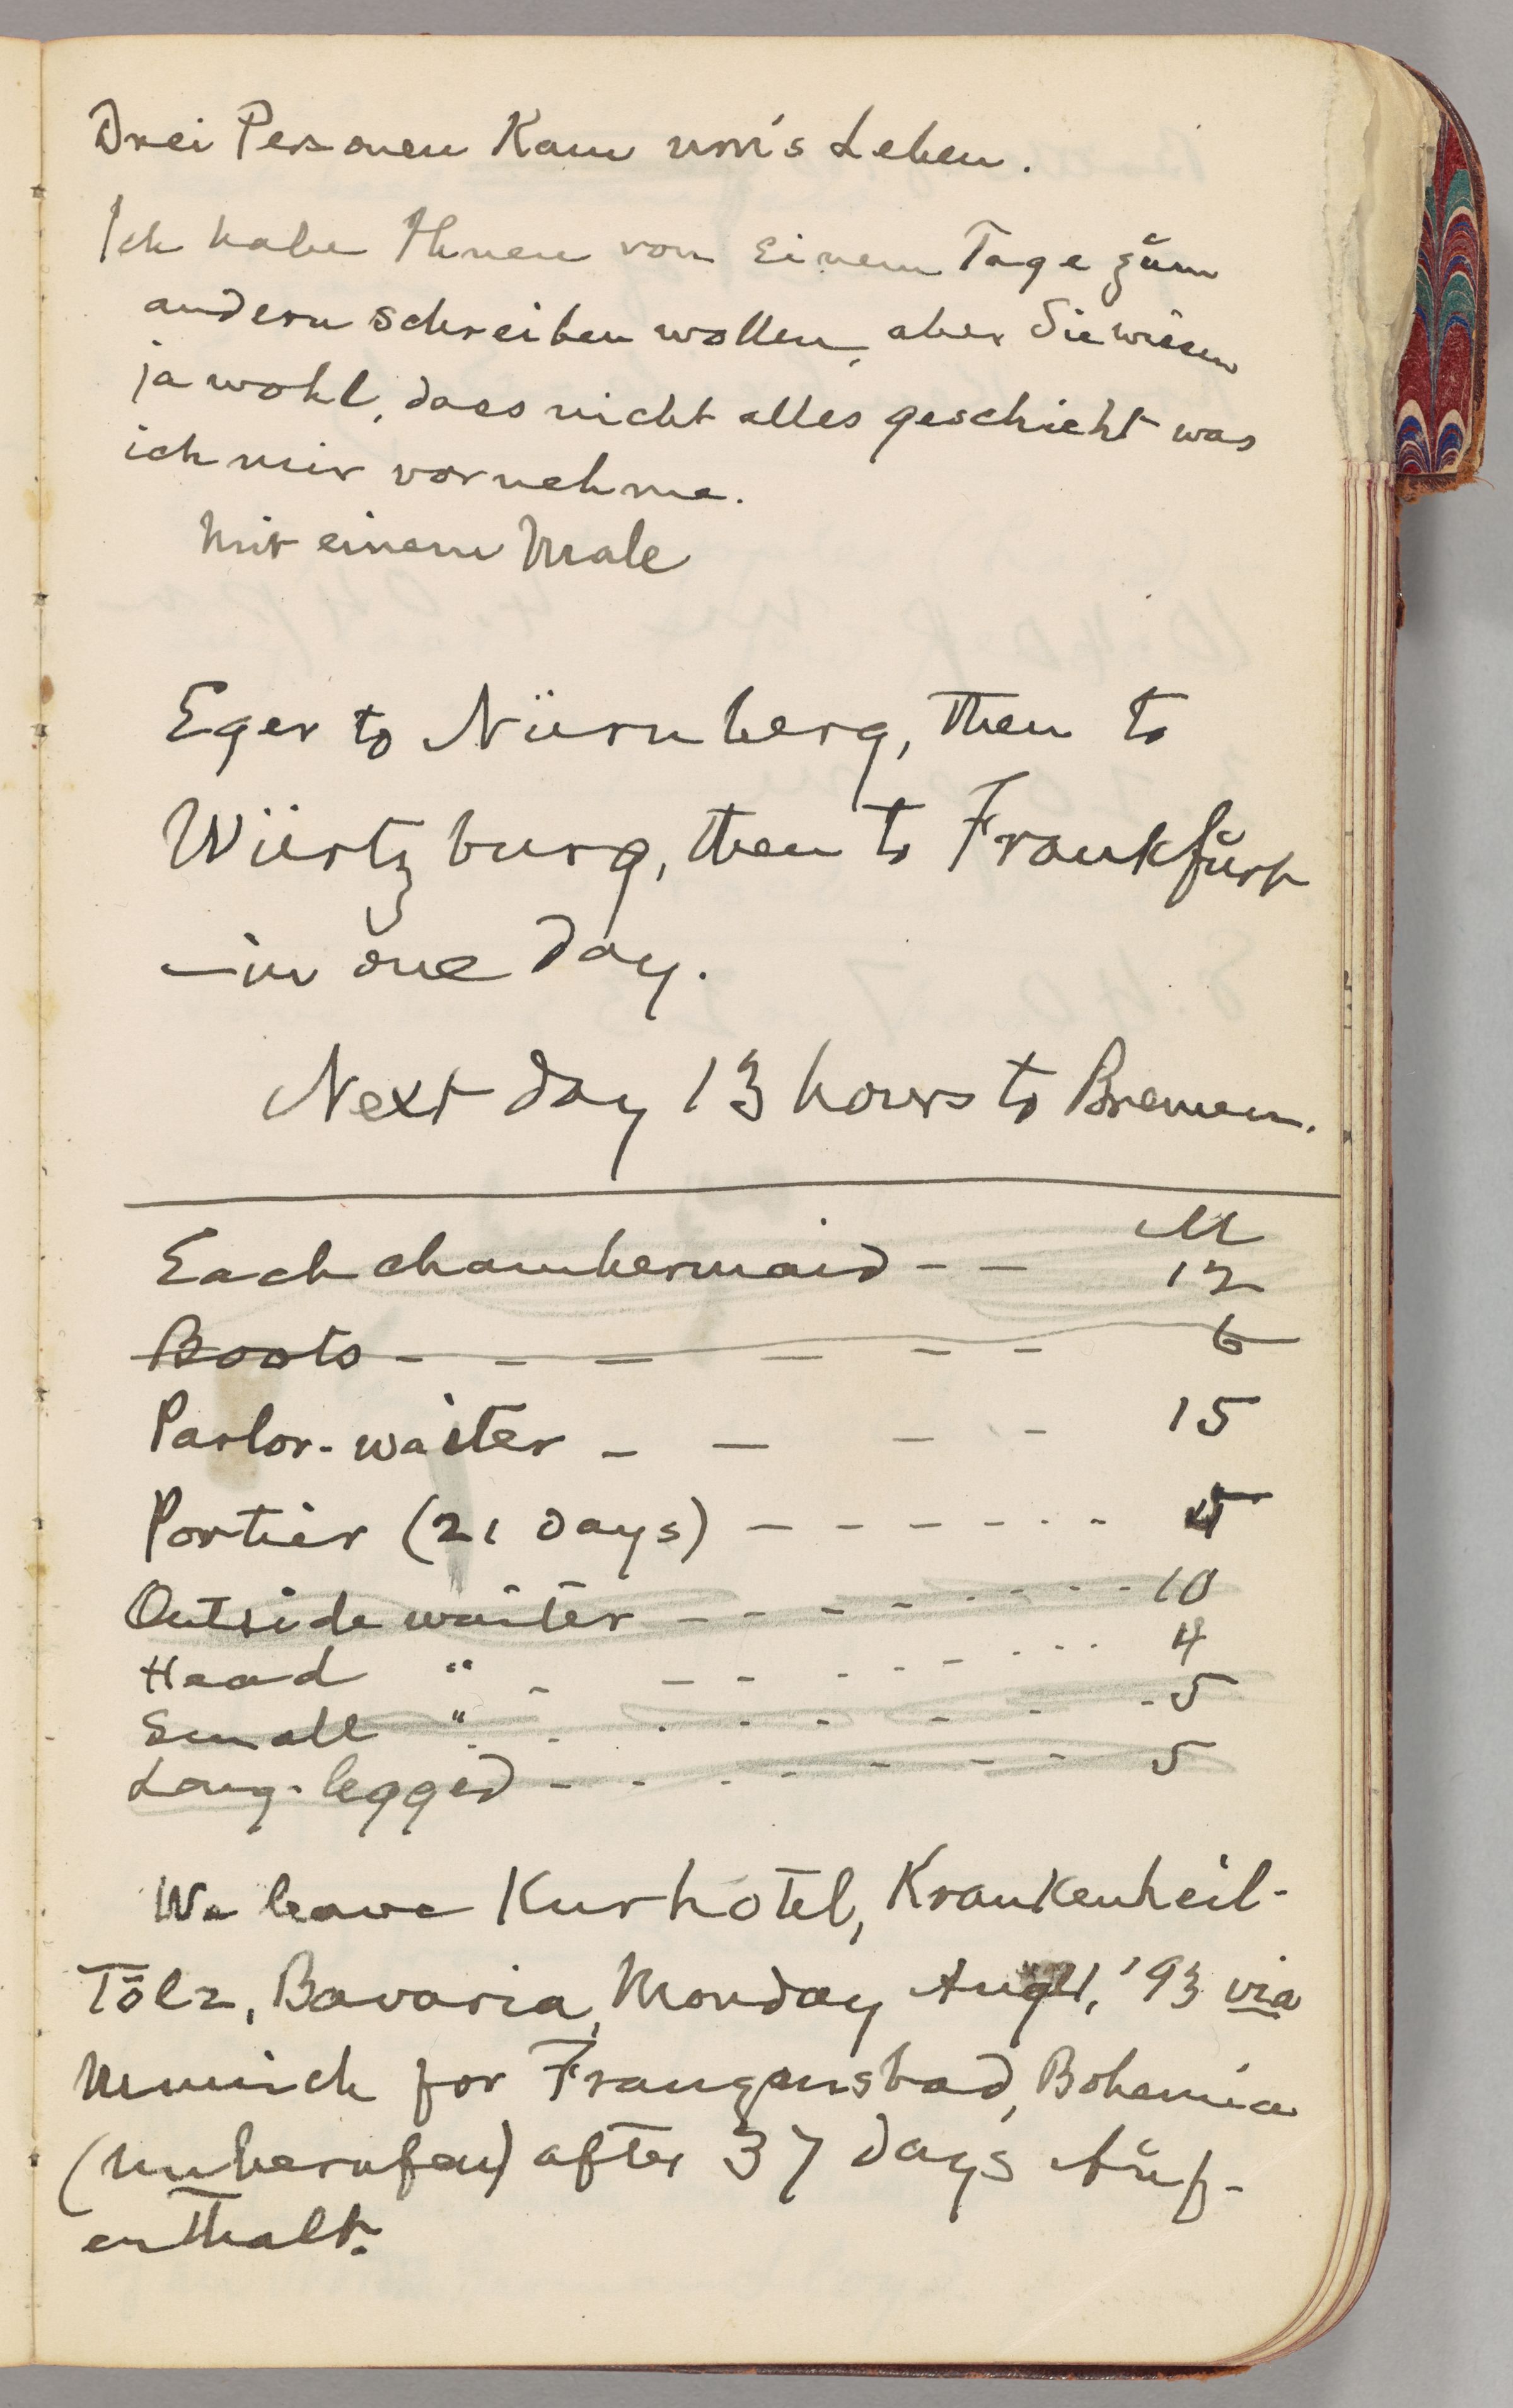 Drei Personen Kam um's Leben.
Ich habe Ihnen von einem Tage zum
andern schreiben wollen, aber Sie wissen
ja wohl, dass nicht alles geschieht was
ich mir vornehme.
Mit einem Male
Eger to Nürnberg, then to
Würtzburg, then to Frankfurt
—in one day.
Next day 13 hours to Bremen.
M
Each chambermaid - - 12
Boots - - - - - - 6
Parlor-waiter - - - - 15
Portier (21 days) - - - - - - -
Outside waiter - - - - - - - - 10
Head " - - - - - - - - - - 4
Small " - - - - - - - - 5
Long-legged - - - - - - - 5
We leave Kurhotel, Krankenheil-
Tölz, Bavaria, Monday '93 via
Munich for Franzensbad, Bohemia
(unberufen) after 37 days Auf-
enthalt.